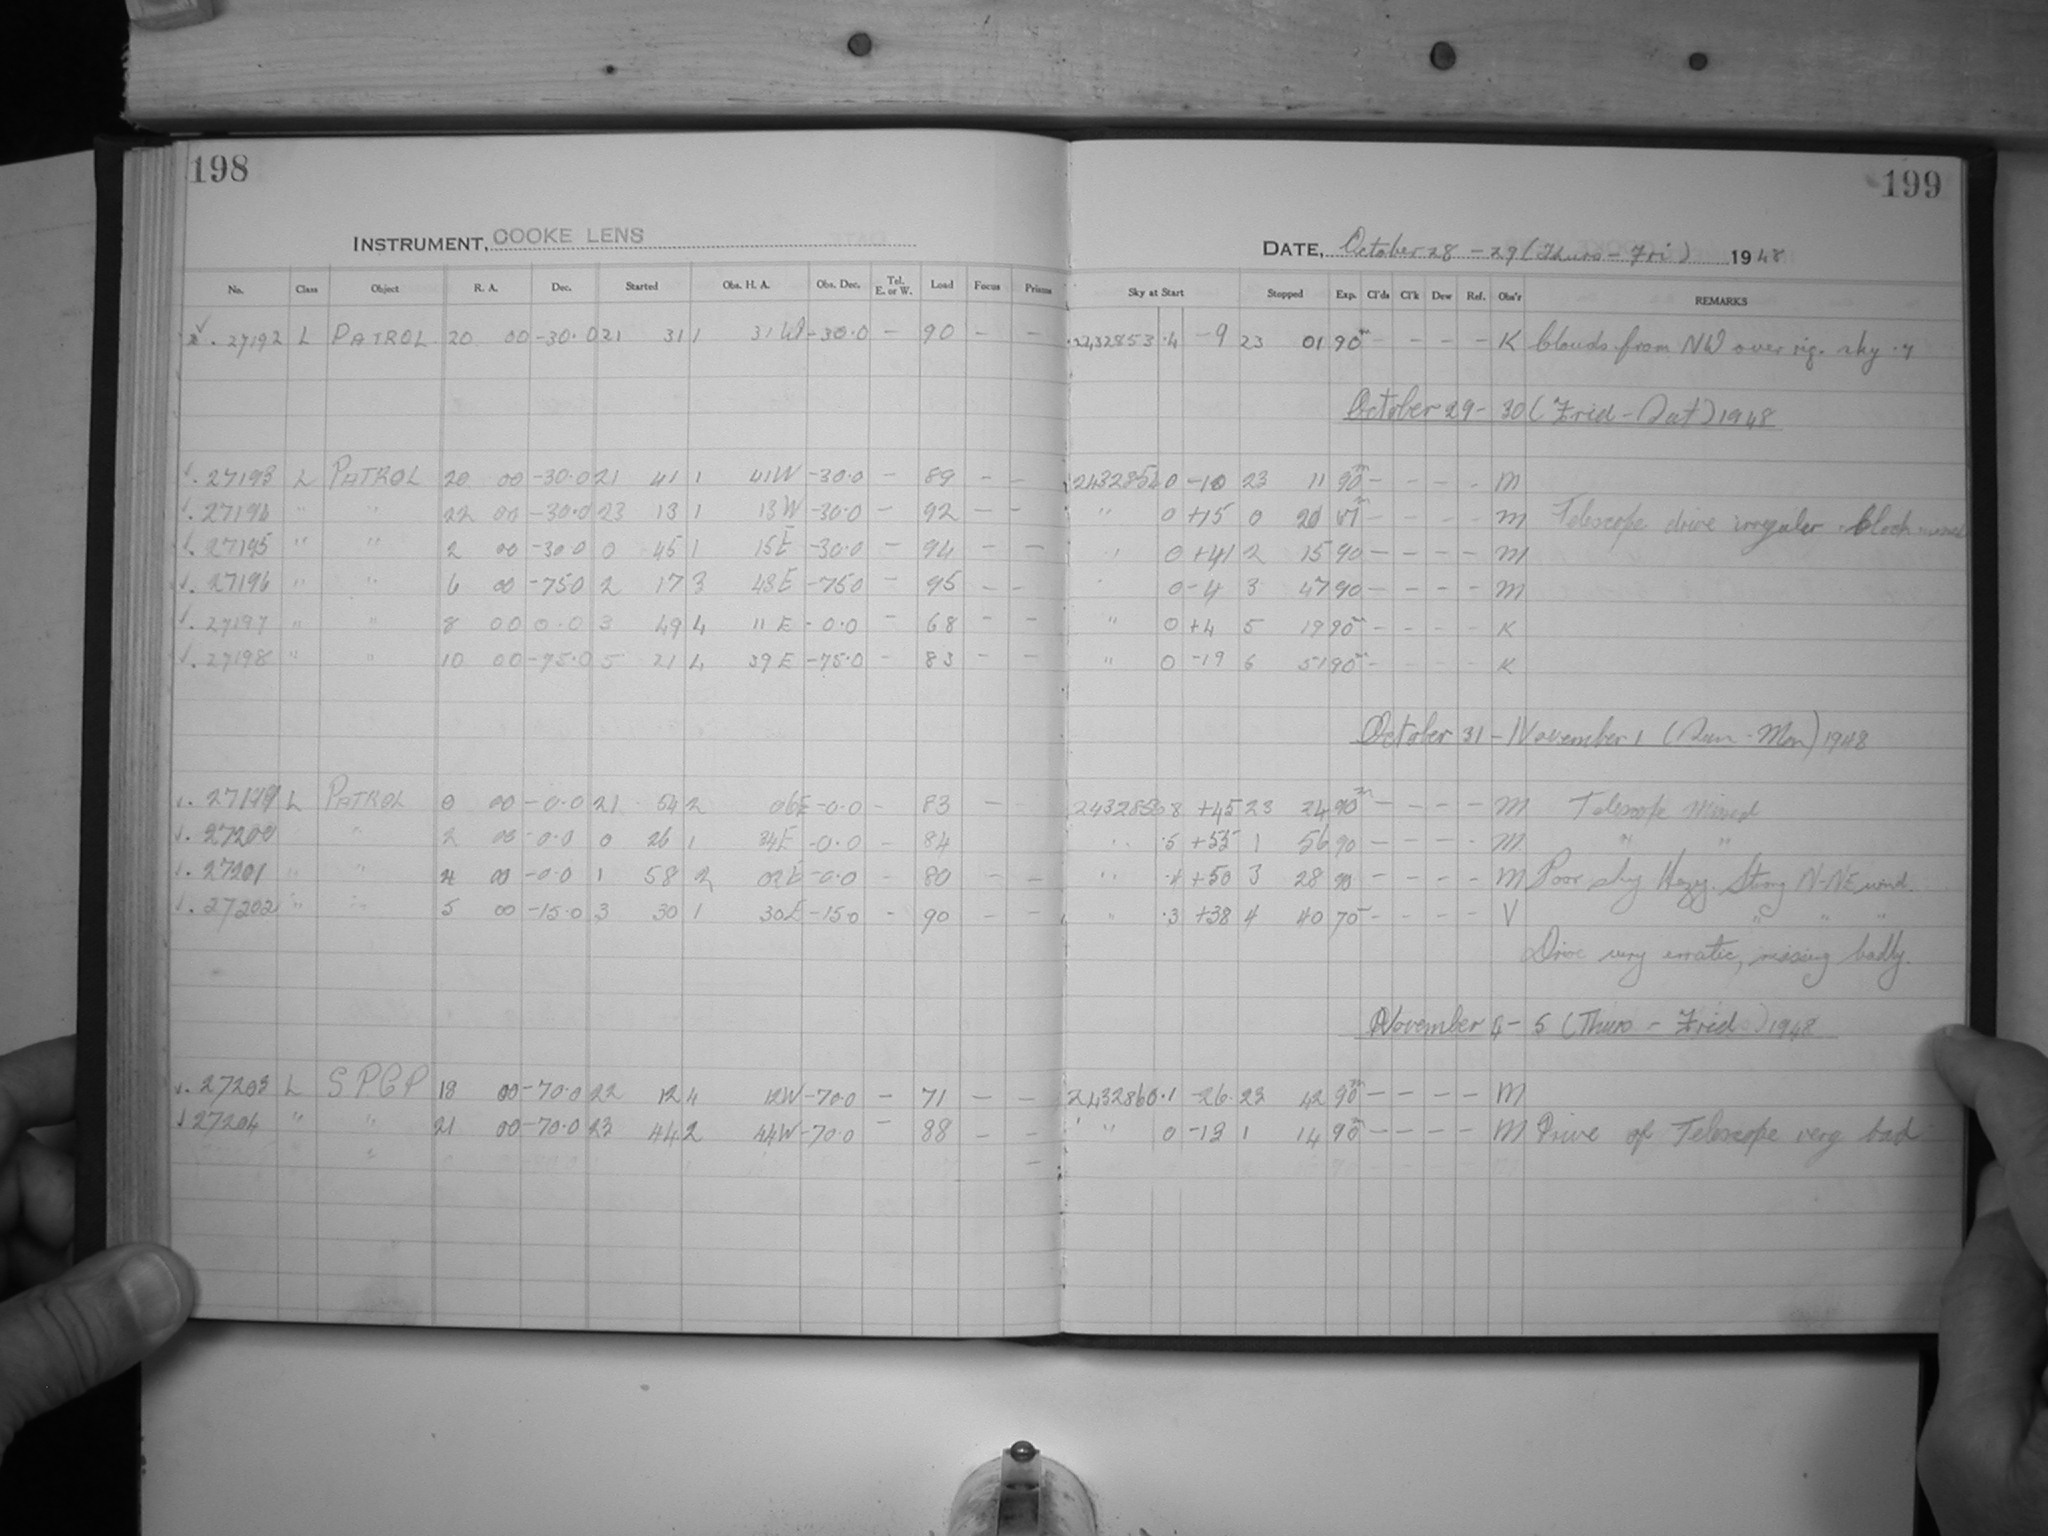 198
199
INSTRUMENT, COOKE LENS
DATE, October 28 - 29 (Thurs - Fri) 1948
No. Class Object R. A. Dec. Started Obs. H. A. Obs. Dec. Tel. E. or W. Load Focus Prisms Sky at Start Stopped Exp. Cl'ds Cl'k Dew Ref. Obs'r REMARKS
27192 L PATROL 20 00 -30.0 21 31 1 31 W -30.0 - 90 - - 2432853 .4 -9 23 01 90m - - - - K Clouds from NW over sky
October 29 - 30 (Frid - Sat) 1948
27193 L PATROL 20 00 -30.0 21 41 1 41W -30.0 - 89 - - 2432854 0 -10 23 11 90m - - - - M
27194 " " 22 00 -30.0 23 13 1 13W -30.0 - 92 - - " 0 +15 0 20 67m - - - - M Telescope drive irregular
27195 " " 2 00 -30.0 0 45 1 15E -30.0 - 94 - - " 0 +41 2 15 90 - - - - M
27196 " " 6 00 -75.0 2 17 3 43E -75.0 - 95 - - " 0 -4 3 47 90 - - - - M
27197 " " 8 00 0.0 3 49 4 11 E -0.0 - 68 - - " 0 +4 5 19 90m - - - - K
27198 " " 10 00 -75.0 5 21 4 39 E -75.0 - 83 - - " 0 -19 6 51 90m - - - - K
October 31 - November 1 (Sun - Mon) 1948
27199 L PATROL 0 00 -0.0 21 54 2 06E -0.0 - 83 - 2432856 8 +45 23 24 90m - - - - M Telescope Missed
27200 " 2 00 -0.0 0 26 1 34E -0.0 - 84 " .5 +55 1 56 90 - - - - M " "
27201 " " 4 00 -0.0 1 58 2 02E -0.0 - 80 - - " .4 +50 3 28 90 - - - - M Poor sky Hazy. Strong N-NE wind.
27202 " " 5 00 -15.0 3 30 1 30E -15.0 - 90 - - " .3 +38 4 40 70m - - - - V " " "
Drive very erratic, missing badly.
November 4 - 5 (Thurs - Frid) 1948
27203 L SPCP 18 00 -70.0 22 12 4 12W -70.0 - 71 - - 2432860 .1 -26 23 42 90m - - - - M
27204 " " 21 00 -70.0 23 44 2 44W -70.0 - 88 - - " 0 -13 1 14 90m - - - - M Drive of Telescope very bad